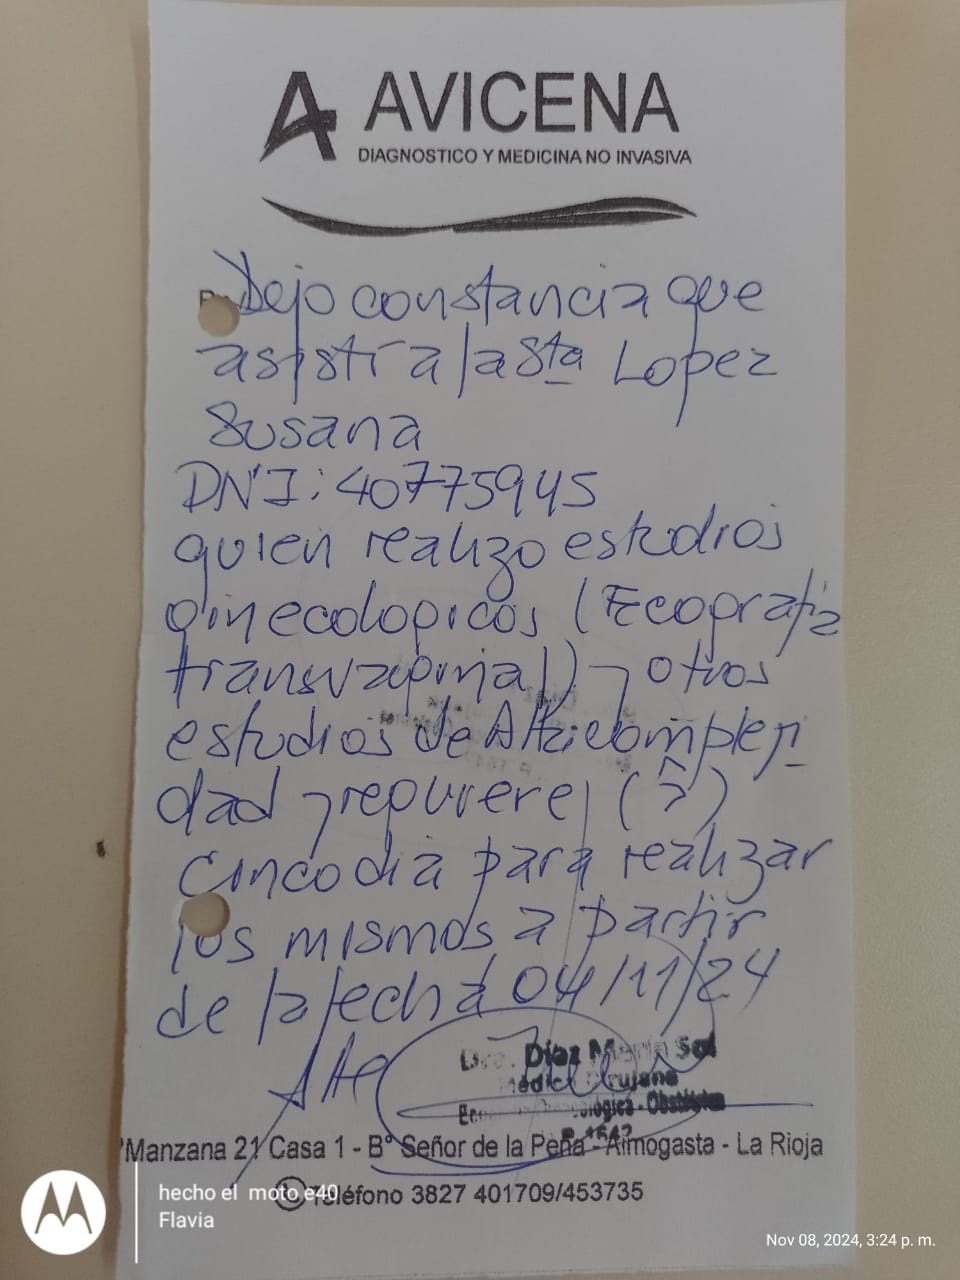 AVICENA
DIAGNOSTICO Y MEDICINA NO INVASIVA
Dejo constancia que
asistí a la sta Lopez
Susana
DNI: 40775945
quien realizo estudios
ginecologicos (Ecografia
transvaginal) y otros
estudios de Alta compleji
dad y requiere (5)
cinco dia para realizar
los mismos a partir
de la fecha 04/11/24
Díaz María Sol
Médica Cirujana
Obstétrica
Manzana 21 Casa 1 - B° Señor de la Peña - Aimogasta - La Rioja
Teléfono 3827 401709/453735
hecho el moto e40
Flavia
Nov 08, 2024, 3:24 p. m.